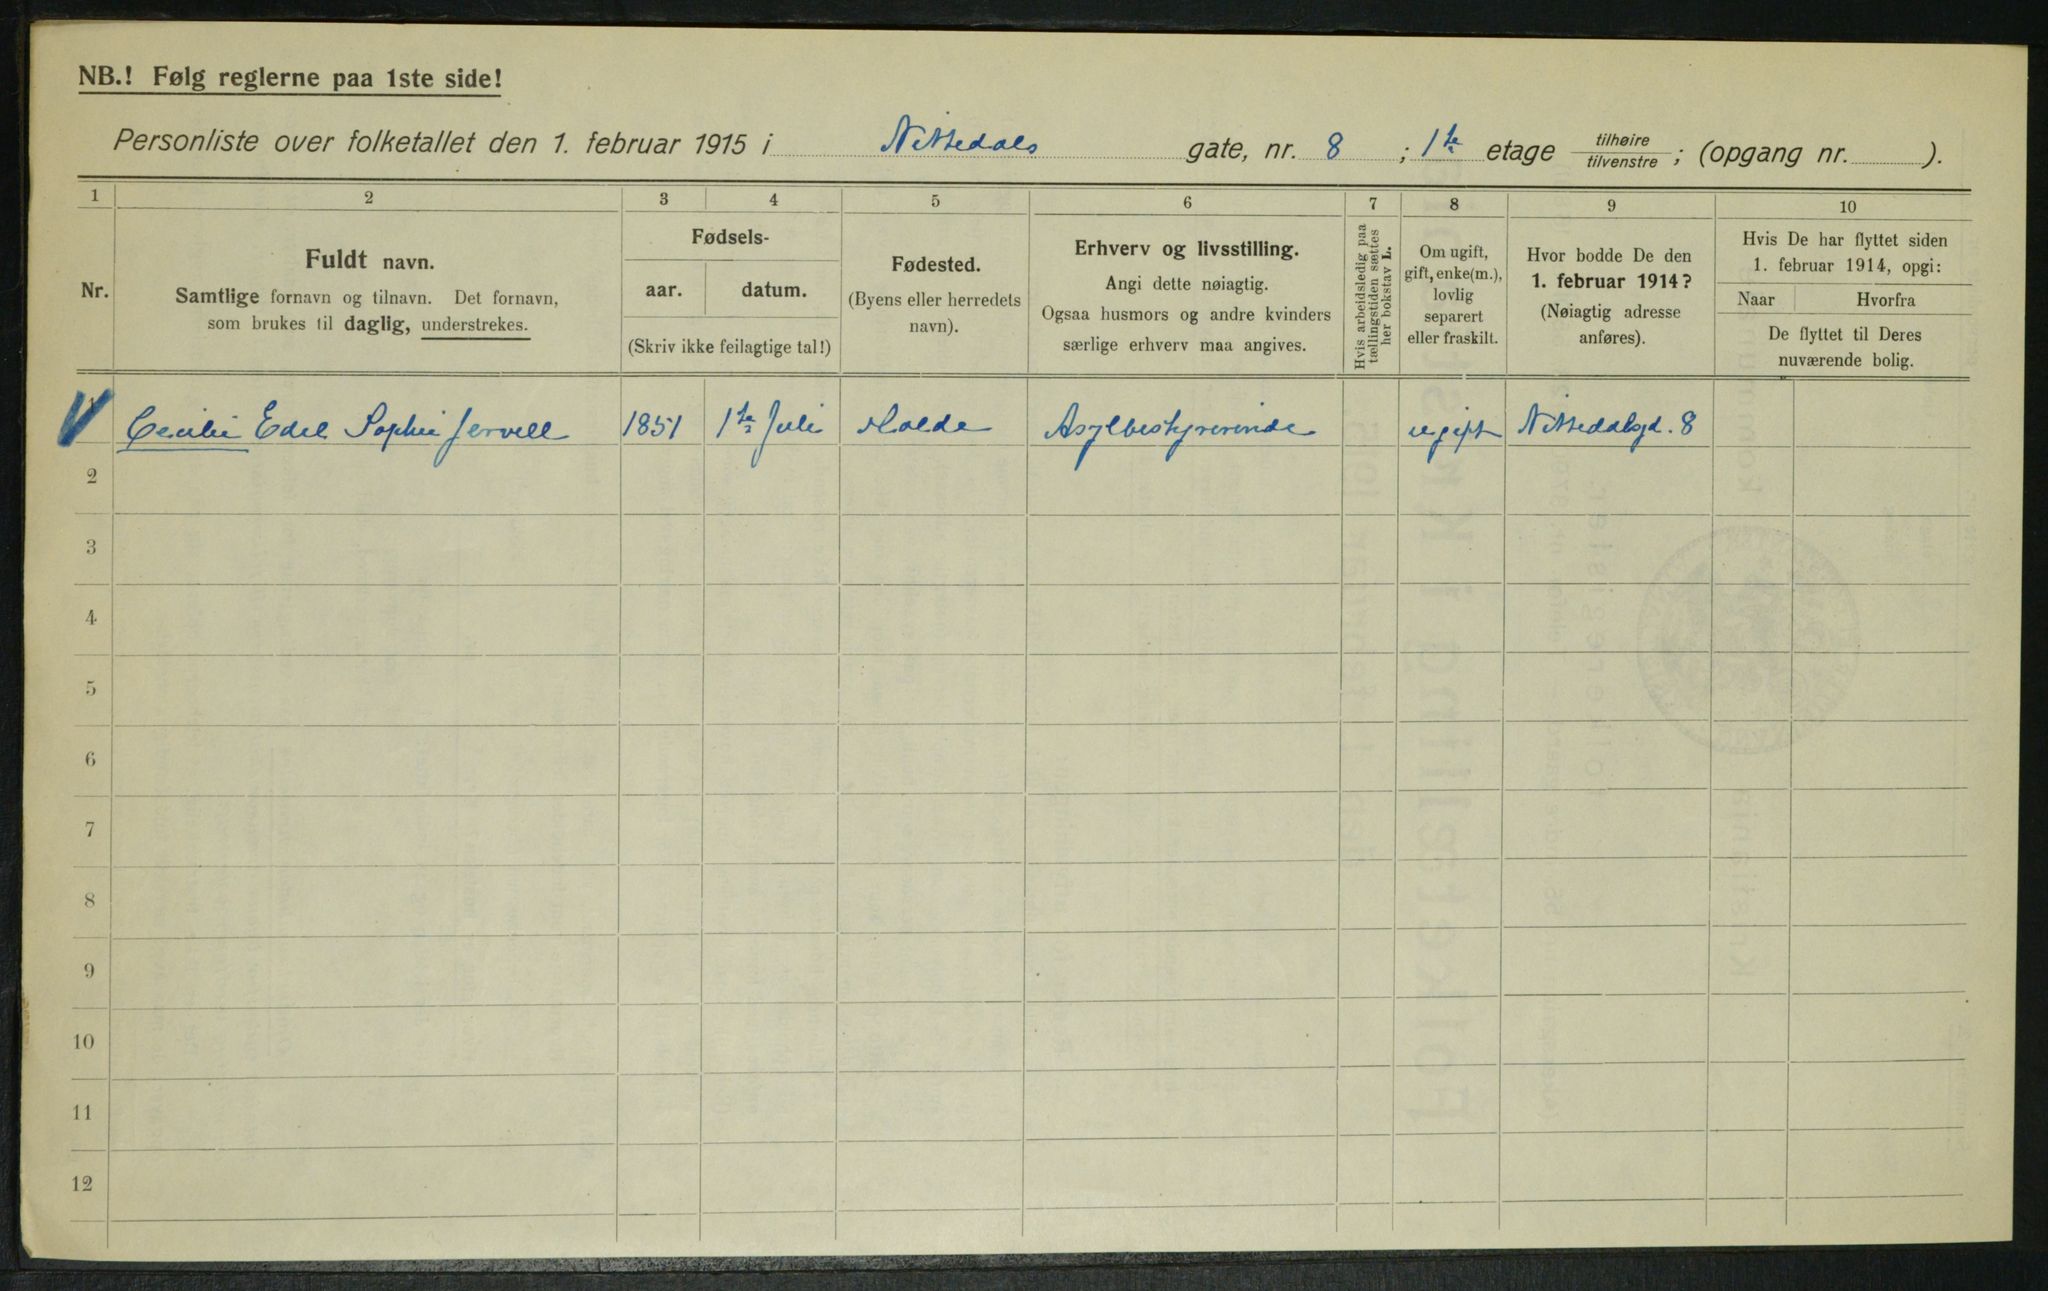 NB.! Følg reglerne paa 1ste side!
Personliste over folketallet den 1. februar 1915 i Nittedals gate, nr. 8 ; 1ste etage tilhøire/tilvenstre ; (opgang nr. ).
1 2 3 4 5 6 7 8 9 10
Nr.
Fuldt navn.
Samtlige fornavn og tilnavn. Det fornavn,
som brukes til daglig, understrekes.
Fødsels-
aar. datum.
(Skriv ikke feilagtige tal!)
Fødested.
(Byens eller herredets
navn).
Erhverv og livsstilling.
Angi dette nøiagtig.
Ogsaa husmors og andre kvinders
særlige erhverv maa angives.
Hvis arbeidsledig paa
tællingstiden sættes
her bokstav L.
Om ugift,
gift, enke(m.),
lovlig
separert
eller fraskilt.
Hvor bodde De den
1. februar 1914?
(Nøiagtig adresse
anføres).
Hvis De har flyttet siden
1. februar 1914, opgi:
Naar Hvorfra
De flyttet til Deres
nuværende bolig.
1 Cecilie Edel Sophie Jervell 1851 1ste Juli Molde Asylbestyrerinde ugift Nittedalsgd. 8
2
3
4
5
6
7
8
9
10
11
12